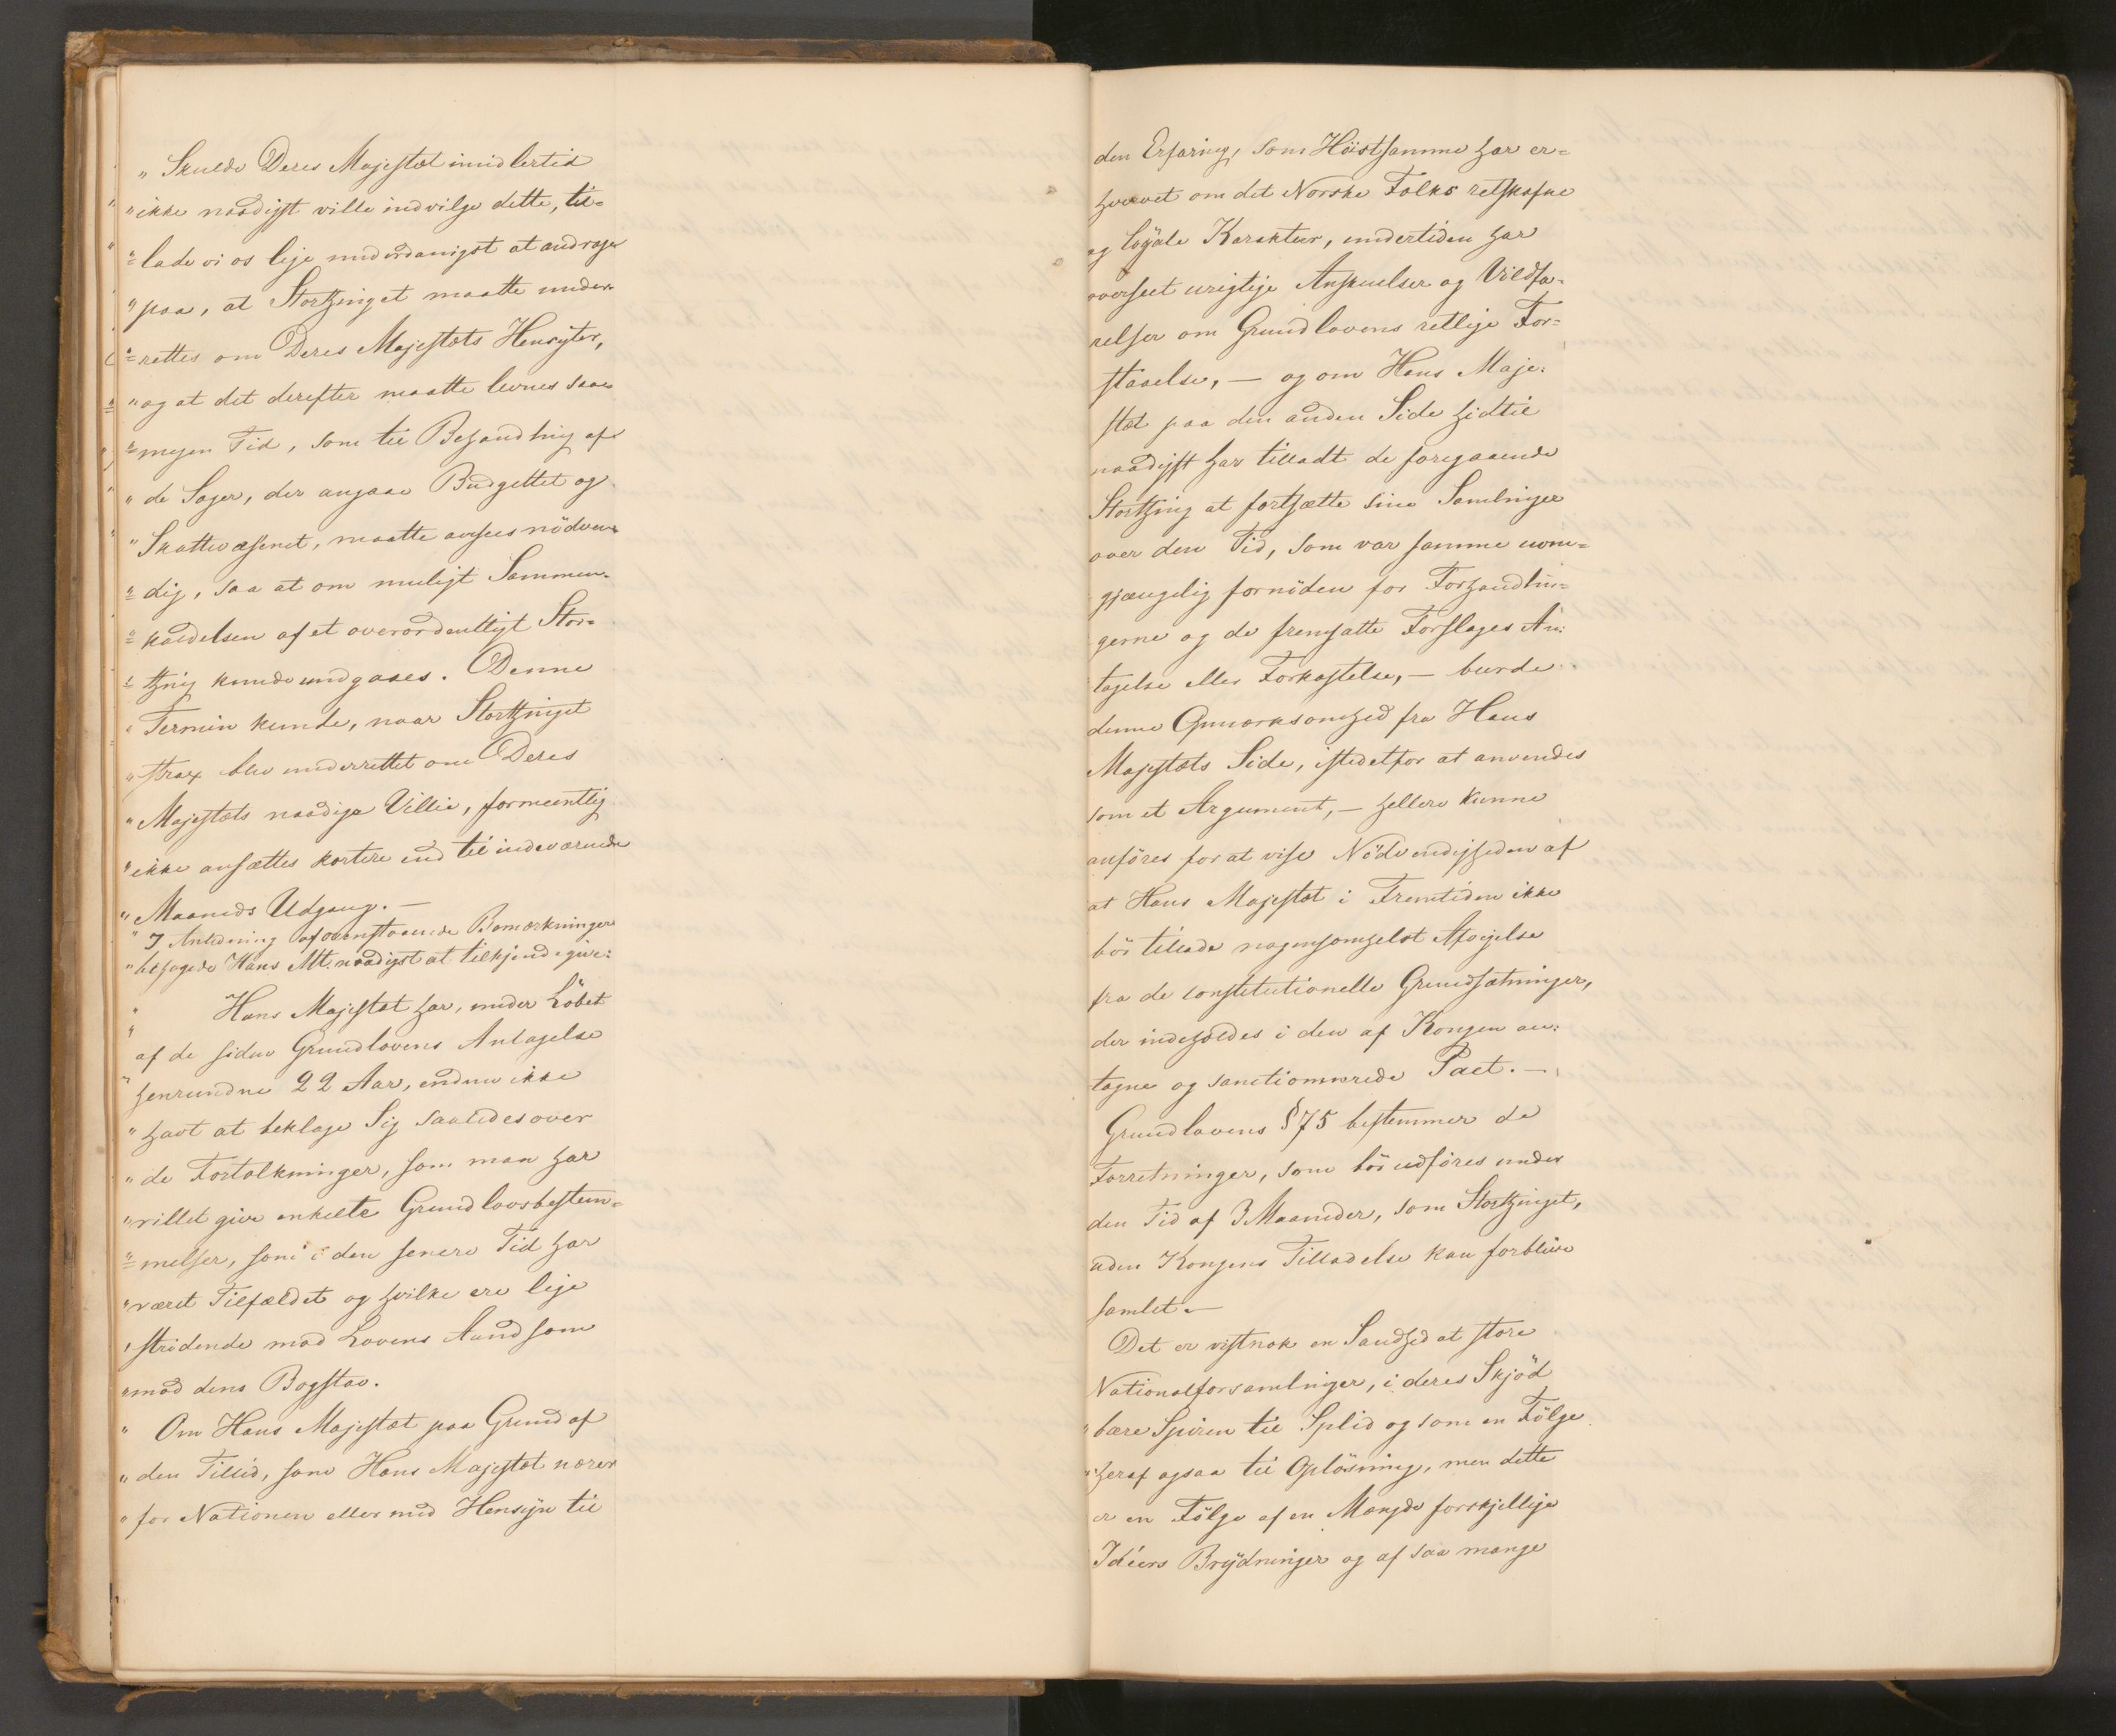 „ Skulde Deres Majestæt imidlertid
„ ikke naadigst ville indvilge dette, til=
„= lade vi os lige underdanigst at andrage
„ paa, at Storthinget maatte under=
„= rettes om Deres Majestæts Hensigter,
„ og at det derefter maatte levnes saa=
„= megen Tid, som til Behandling af
„ de Sager, der angaae Budgettet og
„ Skattevæsenet, maatte ansees nödven=
„= dig, saa at om muligt Sammen=
„= kaldelsen af et overordentligt Stor=
„= thing kunde undgaaes. Denne
„ Termin kunde, naar Storthinget
„ strax blev underrettet om Deres
„ Majestæts naadige Villie, formeentlig
„ ikke ansættes kortere end til indeværende
„ Maaneds Udgang. —
„ I Anledning af ovenstaaende Bemærkninger
„ behagede Hans Mt. naadigst at tilkjendegive:
„ Hans Majestæt har, under Löbet
„ af de siden Grundlovens Antagelse
„ henrundne 22 Aar, endnu ikke
„ havt at beklage Sig saaledes over
„ de Fortolkninger, som man har
„ villet give enkelte Grundlovsbestem=
„= melser, som i den senere Tid har
„ været Tilfældet og hvilke ere lige
„ stridende mod Lovens Aand som
„ mod dens Bogstav.
„ Om Hans Majestæt paa Grund af
„ den Tillid, som Hans Majestæt nærer
„ for Nationen eller med Hensyn til
den Erfaring, som Höistsamme har er=
hvervet om det Norske Folks retskafne
og loÿale Karakteer, undertiden har
overseet urigtige Anskuelser og Vildfa=
relser om Grundlovens retlige For=
staaelse, — og om Hans Maje=
stæt paa den anden Side hidtil
naadigst har tilladt de foregaaende
Storthing at fortsætte sine Samlinger
over den Tid, som var samme uom=
gjængelig fornöden for Forhandlin=
gerne og de fremsatte Forslages An=
tagelse eller Forkastelse, — burde
denne Opmærksomhed fra Hans
Majestæts Side, istedetfor at anvendes
som et Argument, — hellere kunne
anföres for at vise Nödvendigheden af
at Hans Majestæt i Fremtiden ikke
bör tillade nogensomhelst Afvigelse
fra de constitutionelle Grundsætninger,
der indeholdes i den af Kongen an=
tagne og sanctionnerede Pact. —
Grundlovens § 75 bestemmer de
Forretninger, som bör udföres under
den Tid af 3 Maaneder, som Storthinget,
uden Kongens Tilladelse kan forblive
samlet. —
Det er vistnok en Sandhed at store
Nationalforsamlinger, i deres Skjöd
„ bære Spiren til Splid og som en Fölge
„ heraf ogsaa til Oplösning, men dette
er en Fölge af en Mængde forskjellige
Idéers Brÿdninger og af saa mange